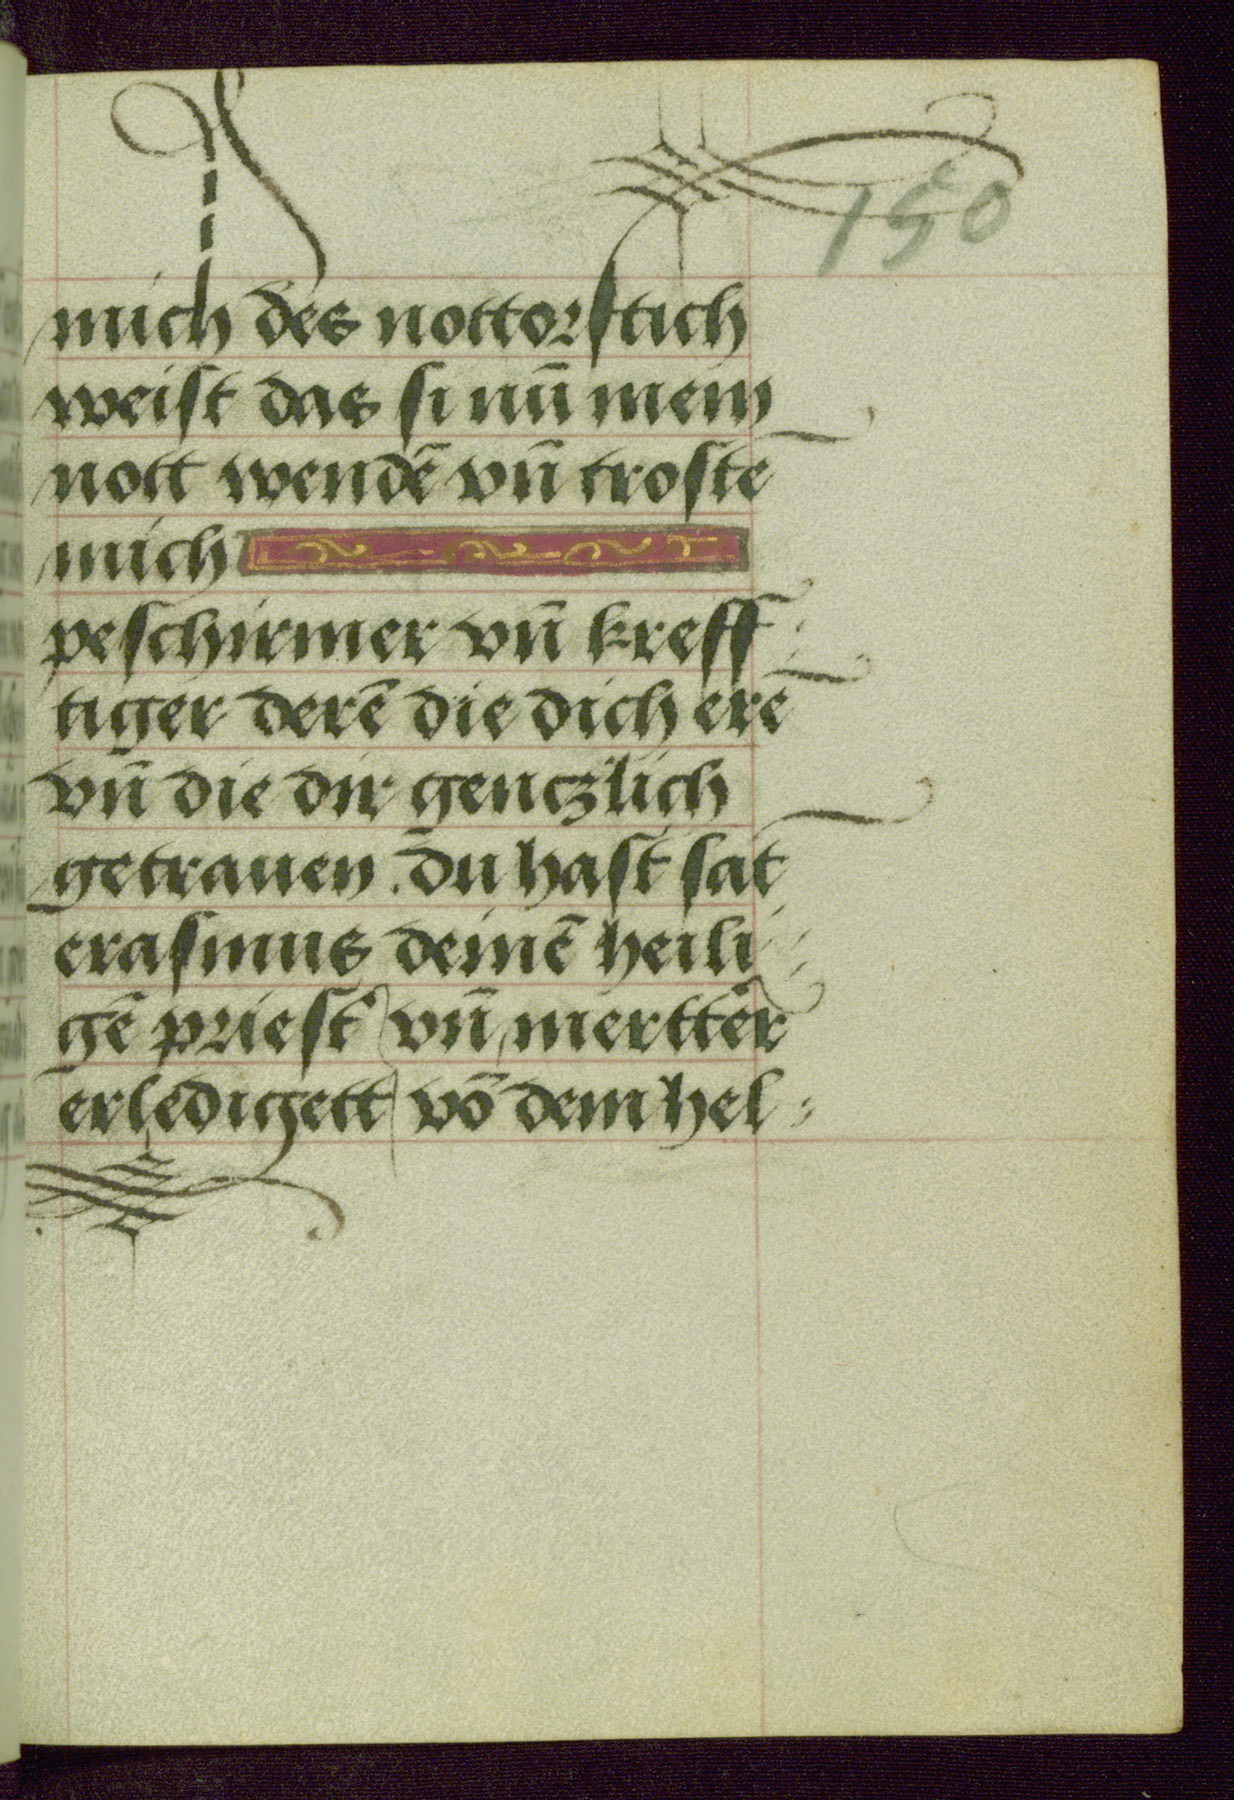 150
mich des nottorftich
weist das si nū mein
nott wendē vn̄ troste
mich
peschirmer vn̄ kreff
tiger derē die dich erē
vn̄ die dir genczlich
getrauen . du hast sāt
erasmus deinē heili
gē priest' vn̄ mertter
erledigett vō dem hel